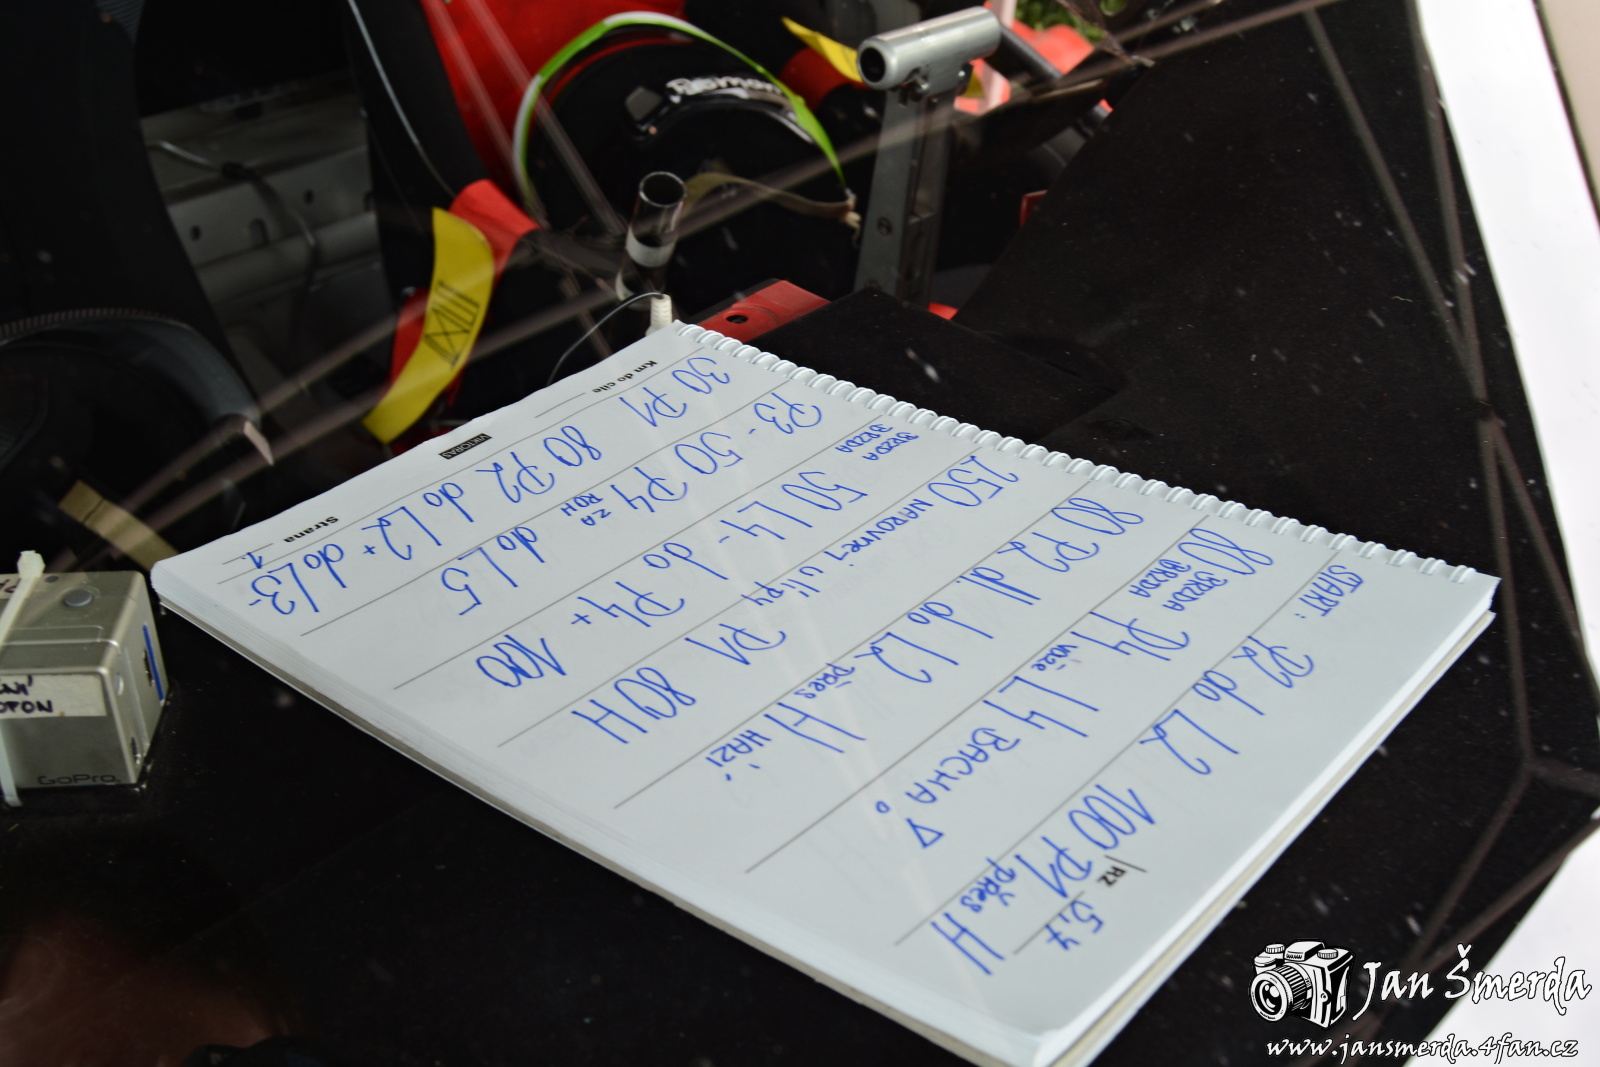 RZ 5,7
START: P2 do L2 100 P1 PŘES H
80 BRZDA BRZDA P4 váže L4 BACHA!
80 P2 dl. do L2 PŘES H HÁZÍ
250 NAROVNEJ U lípy P1 80H
BRZDA BRZDA 50 L4- do P4+ 100
P3- 50 P4 ZA ROH do L5
30 P1 80 P2 do L2+ do L3-
Km do cíle VIKTORAS Strana 1.
GoPro
Jan Šmerda
www.jansmerda.4fan.cz